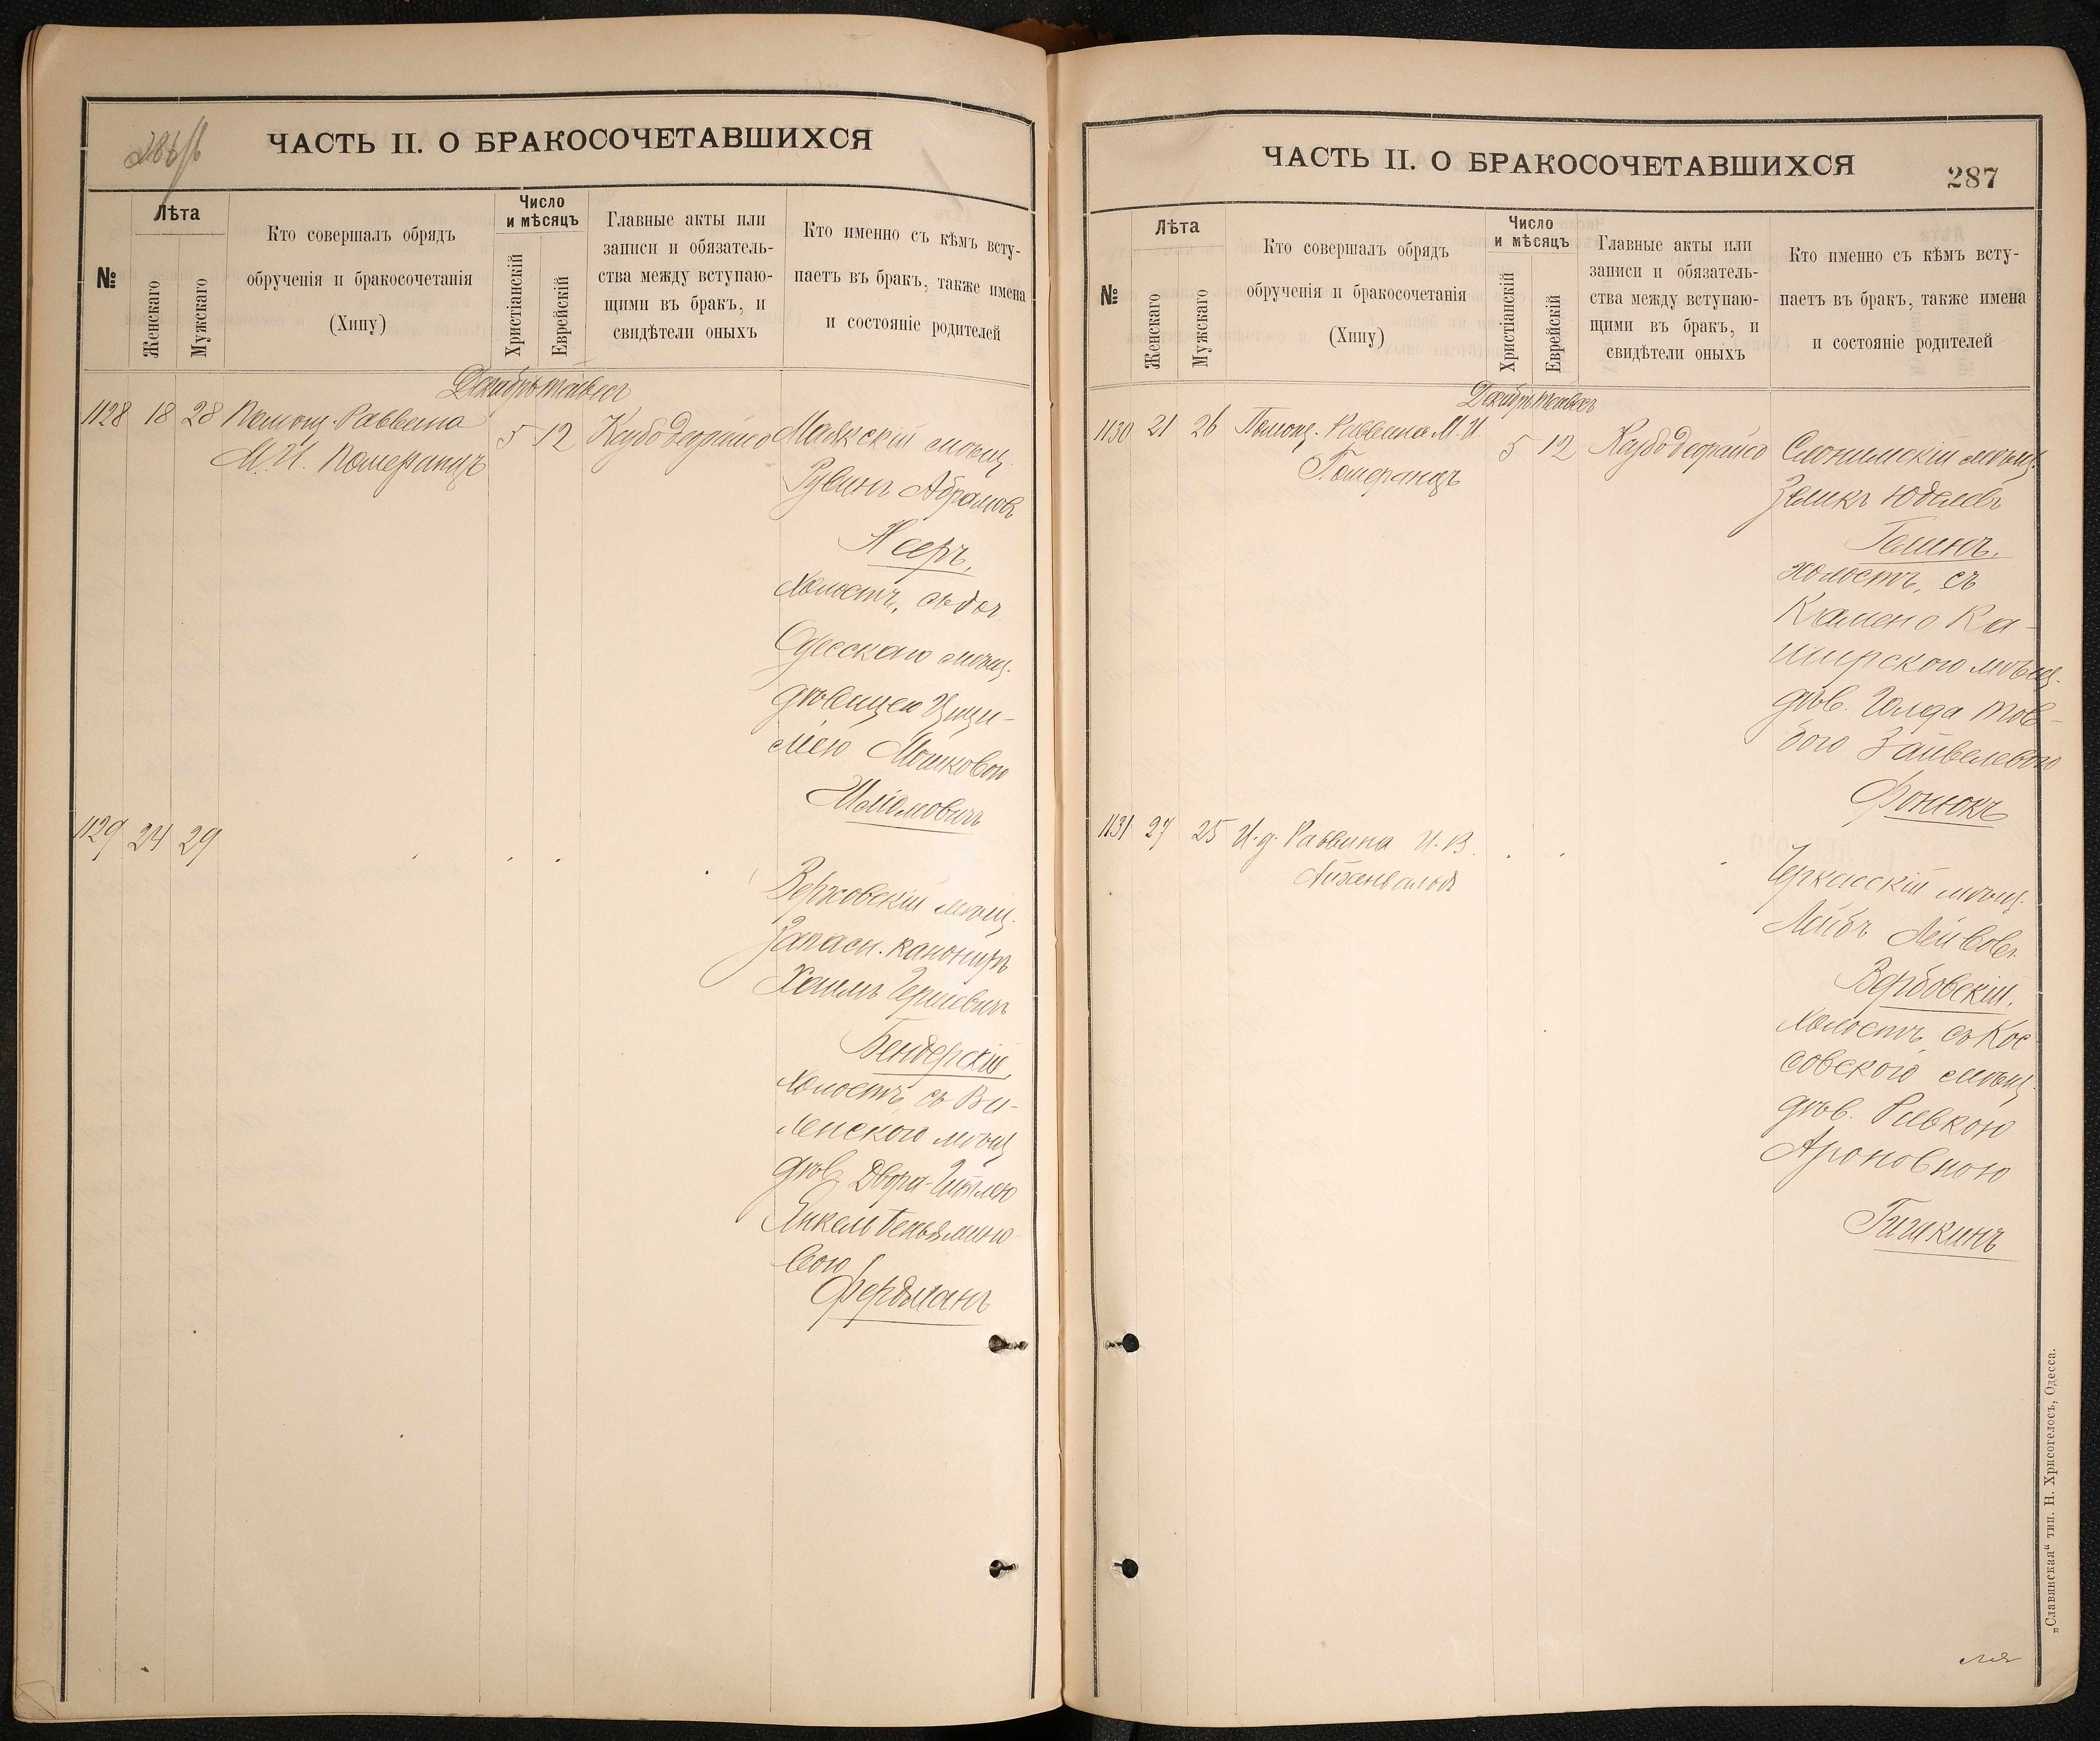 286/б
ЧАСТЬ II. О БРАКОСОЧЕТАВШИХСЯ
№
Лѣта
Женскаго
Мужскаго
Кто совершалъ обрядъ
обрученія и бракосочетанія
(Хипу)
Число
и мѣсяцъ
Христіанскій
Еврейскій
Главные акты или
записи и обязатель-
ства между вступаю-
щими въ бракъ, и
свидѣтели оныхъ
Кто именно съ кѣмъ всту-
паетъ въ бракъ, также имена
и состояніе родителей
Декабрь тейвесъ
1128 18 28 Помощ. Раввина
М. И. Померанцъ
5 12
Маякскій мѣщ.
Рувинъ Абрамовъ
Ксеръ,
холостъ, съ доч
Одесскаго мѣщ.
дѣвицею Ципи-
Мошковою
1129 24 29
мѣщ.
Запасн. канониръ
Хаимъ Гершовичъ
Бендерскій,
холостъ съ Ви-
ленскаго мѣщ
дѣв. Двора-
Янкель Беньямино
вою
Фердманъ
ЧАСТЬ II. О БРАКОСОЧЕТАВШИХСЯ
287
№
Лѣта
Женскаго
Мужскаго
Кто совершалъ обрядъ
обрученія и бракосочетанія
(Хипу)
Число
и мѣсяцъ
Христіанскій
Еврейскій
Главные акты или
записи и обязатель-
ства между вступаю-
щими въ бракъ, и
свидѣтели оныхъ
Кто именно съ кѣмъ всту-
паетъ въ бракъ, также имена
и состояніе родителей
Декабрь тейвесъ
1130 21 26 Помощ. Раввина М. И.
Померанцъ
5 12
Слонимскій мѣщ.
Зеликъ Юделевъ
холостъ, съ
Камено Ка-
ширскою мѣщ.
дѣв. Голда Тов-
бою Зайвелевою
Фонюкъ
1131 27 25 И. д. Раввина И. В.
Айзенвальдъ
Черкасскій мѣщ.
Лейбъ Лейбовъ
Вербовскій,
холостъ, съ Кос
совскою мѣщ.
дѣв. Ривкою
Ароновною
Гишкинъ
„Славянская“ тип. Н. Хрисогелосъ, Одесса.